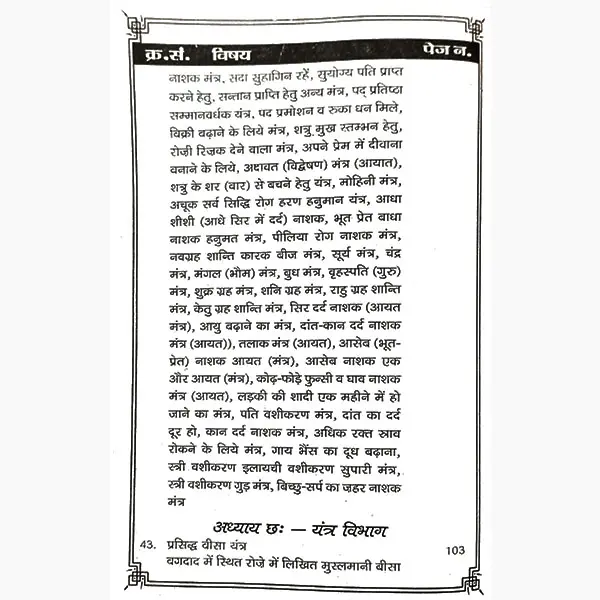 क्र.सं. विषय पेज न.
नाशक मंत्र, सदा सुहागिन रहें, सुयोग्य पति प्राप्त
करने हेतु, सन्तान प्राप्ति हेतु अन्य मंत्र, पद् प्रतिष्ठा
सम्मानवर्धक यंत्र, पद प्रमोशन व रुका धन मिले,
विक्री बढ़ाने के लिये मंत्र, शत्रु मुख स्तम्भन हेतु,
रोज़ी रिज़क देने वाला मंत्र, अपने प्रेम में दीवाना
वनाने के लिये, अदावत (विद्वेषण) मंत्र (आयात),
शत्रु के शर (वार) से बचने हेतु यंत्र, मोहिनी मंत्र,
अचूक सर्व सिद्धि रोग हरण हनुमान यंत्र, आधा
शीशी (आधे सिर में दर्द) नाशक, भूत प्रेत बाधा
नाशक हनुमत मंत्र, पीलिया रोग नाशक मंत्र,
नवग्रह शान्ति कारक बीज मंत्र, सूर्य मंत्र, चंद्र
मंत्र, मंगल (भौम) मंत्र, बुध मंत्र, वृहस्पति (गुरु)
मंत्र, शुक्र ग्रह मंत्र, शनि ग्रह मंत्र, राहु ग्रह शान्ति
मंत्र, केतु ग्रह शान्ति मंत्र, सिर दर्द नाशक (आयत
मंत्र), आयु बढ़ाने का मंत्र, दांत-कान दर्द नाशक
मंत्र (आयत)), तलाक मंत्र (आयत), आसेब (भूत-
प्रेत) नाशक आयत (मंत्र), आसेब नाशक एक
और आयत (मंत्र), कोढ़-फोड़े फुन्सी व घाव नाशक
मंत्र (आयत), लड़की की शादी एक महीने में हो
जाने का मंत्र, पति वशीकरण मंत्र, दांत का दर्द
दूर हो, कान दर्द नाशक मंत्र, अधिक रक्त स्राव
रोकने के लिये मंत्र, गाय भैंस का दूध बढ़ाना,
स्त्री वशीकरण इलायची वशीकरण सुपारी मंत्र,
स्त्री वशीकरण गुड़ मंत्र, बिच्छु-सर्प का जहर नाशक
मंत्र
अध्याय छः – यंत्र विभाग
43. प्रसिद्ध वीसा यंत्र 103
बगदाद में स्थित रोज़े में लिखित मुस्लमानी बीसा